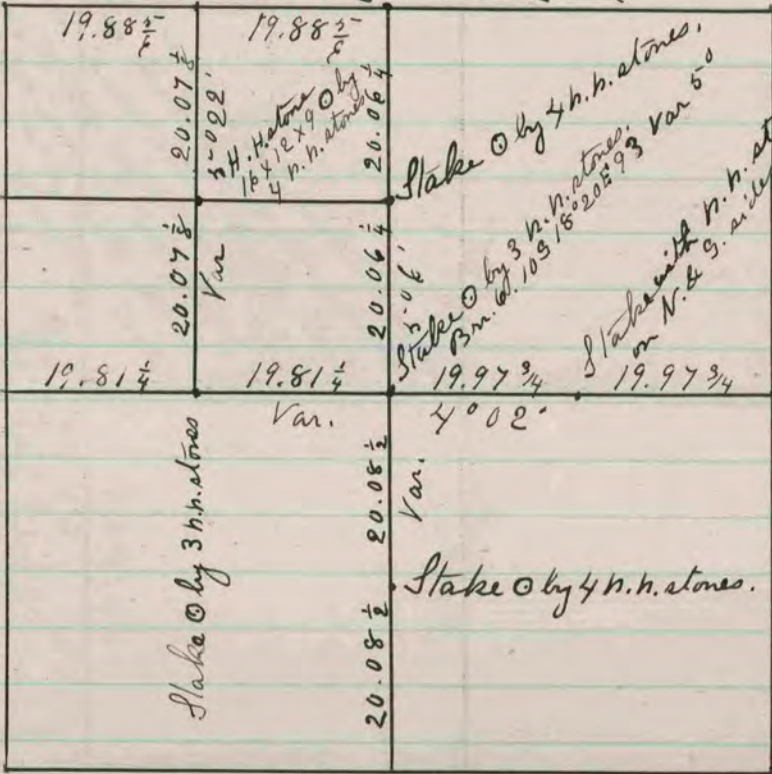 19.88 5/8 19.88 5/8
20.07 1/8
5°022'
H.H. stone
16 x 12 x 9 ⊙ by
4 n.n. stones
20.06 1/4
Stake ⊙ by 4 n.n. stones.
20.07 1/8
Var
20.06 1/4
Stake ⊙ by 3 n.n. stones.
Br. 10 S 18°20 E 93 Var 5°
Stake with n.n. st
on N. & S. side
19.81 1/4 19.81 1/4 19.97 3/4 19.97 3/4
Var. 4°02'
Stake ⊙ by 3 n.n. stones
20.08 1/2
Var.
Stake ⊙ by 4 n.n. stones.
20.08 1/2